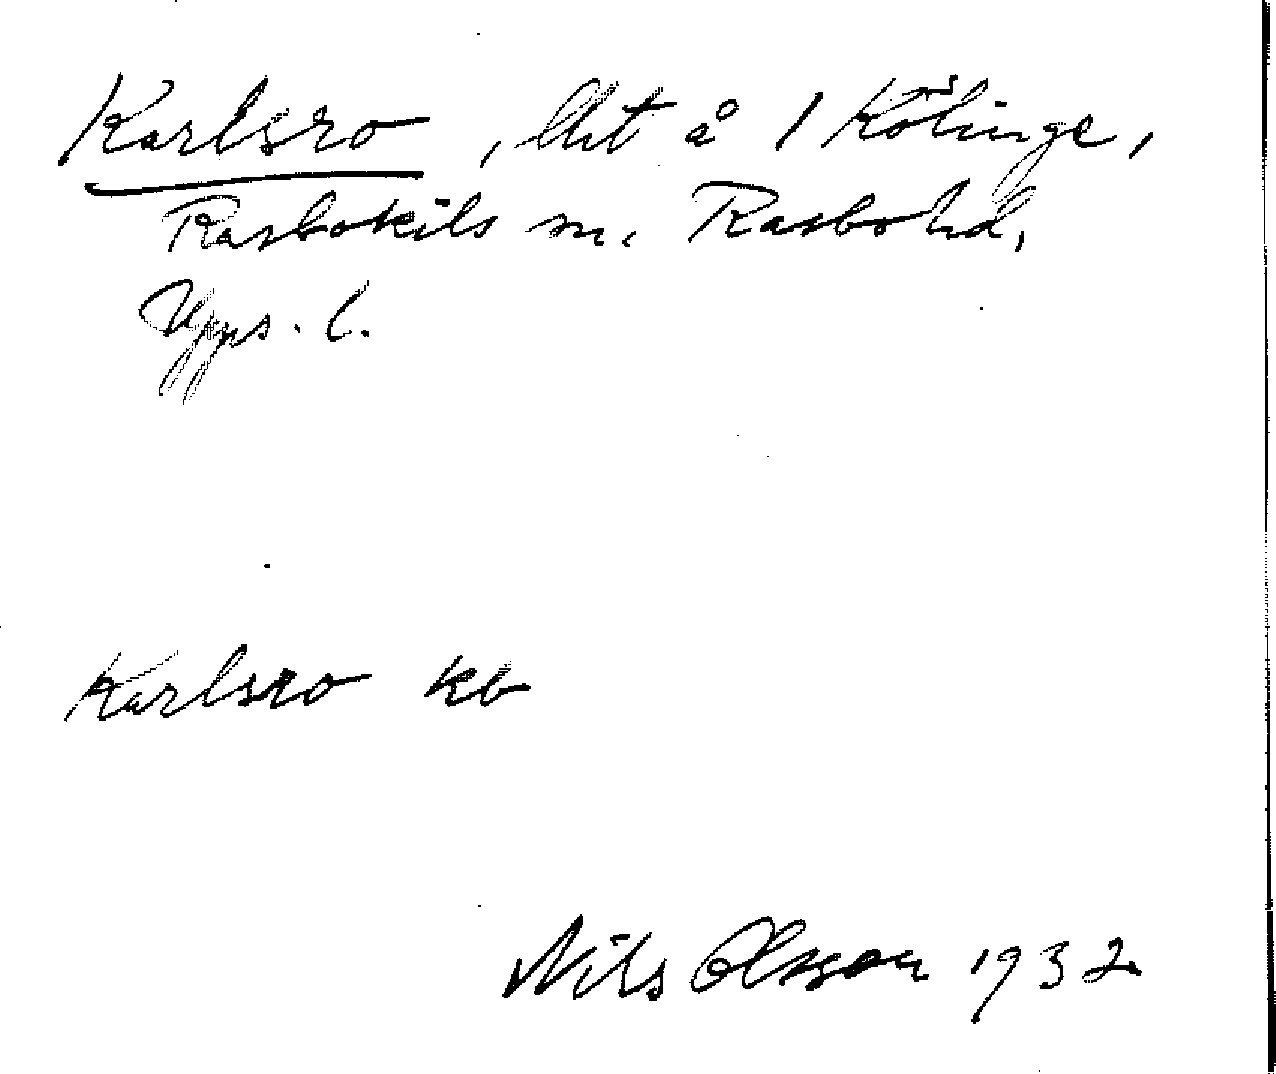 Karlsro, lht å 1 Kölinge,
Rasbokils sn. Rasbo hd,
Upps. l.
Karlsro kb
Nils Olsson 1932